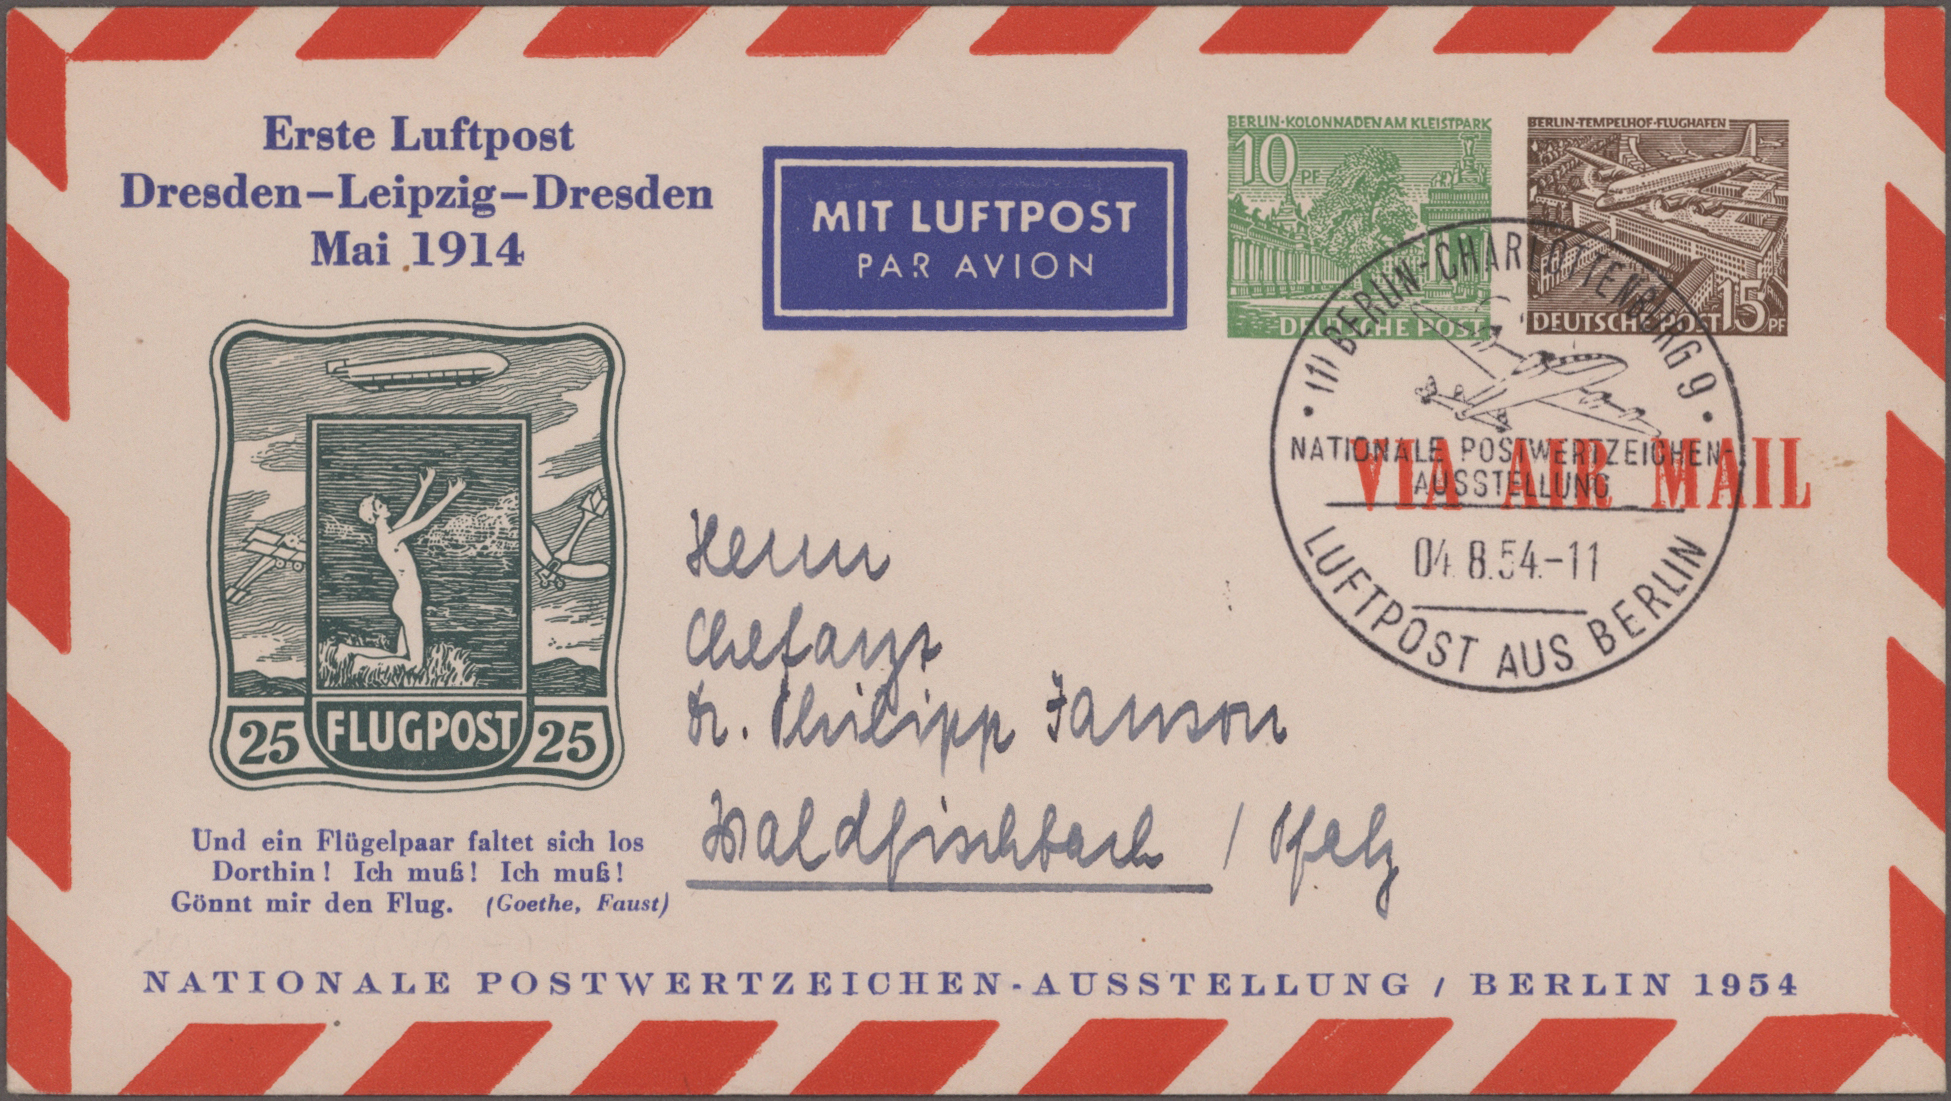 Erste Luftpost
Dresden–Leipzig–Dresden
Mai 1914
MIT LUFTPOST
PAR AVION
BERLIN·KOLONNADEN AM KLEISTPARK
10 PF
DEUTSCHE POST
BERLIN·TEMPELHOF·FLUGHAFEN
DEUTSCHE POST 15 PF
· (1) BERLIN-CHARLOTTENBURG 9 ·
NATIONALE POSTWERTZEICHEN-
AUSSTELLUNG
04.8.54.-11
LUFTPOST AUS BERLIN
VIA AIR MAIL
25 FLUGPOST 25
Herrn
Chefarzt
Dr. Philipp Janson
Waldfischbach / Pfalz
Und ein Flügelpaar faltet sich los
Dorthin! Ich muß! Ich muß!
Gönnt mir den Flug. (Goethe, Faust)
NATIONALE POSTWERTZEICHEN-AUSSTELLUNG / BERLIN 1954